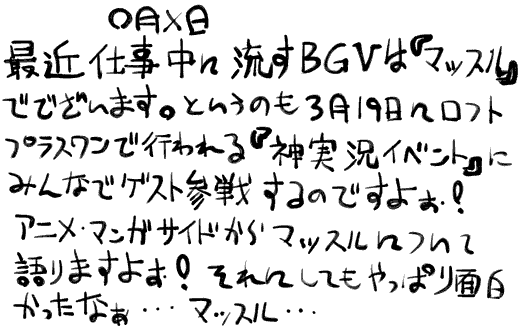 〇月×日
最近仕事中に流すBGVは『マッスル』
でございます。というのも3月19日にロフト
プラスワンで行われる『神実況イベント』に
みんなでゲスト参戦するのですよぉ!
アニメ・マンガサイドからマッスルについて
語りますよぉ!それにしてもやっぱり面白
かったなぁ…マッスル…